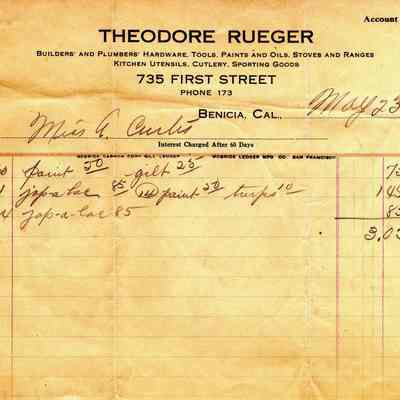 Account
THEODORE RUEGER
BUILDERS' AND PLUMBERS' HARDWARE, TOOLS, PAINTS AND OILS, STOVES AND RANGES
KITCHEN UTENSILS, CUTLERY, SPORTING GOODS
735 FIRST STREET
PHONE 173
BENICIA, CAL., May 23
Miss A. Curtis
Interest Charged After 60 Days
MCBRIDE LEDGER MFG CO. SAN FRANCISCO
paint 50 gilt 25 75
jap-a-lac 85 paint 50 turps 10 1 45
jap-a-lac 85 85
3.05